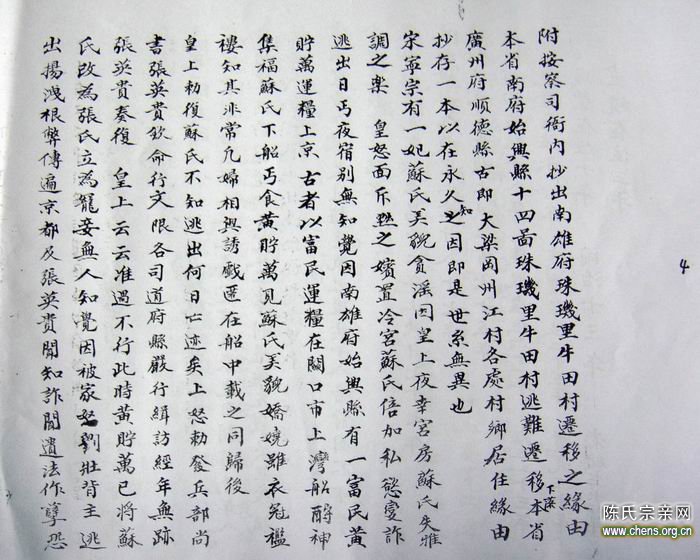 附按察司衙内抄出南雄府珠璣里牛田村遷移之緣由
本省南府始興縣十四啚珠璣里牛田村逃難遷移下落本省
廣州府順德縣古即大梁岡州江村各處村鄉居住緣由
抄存一本以在永久知之因即是世系無異也
宋寧宗有一妃蘇氏美貌貪淫因皇上夜幸宮房蘇氏失雅
調之樂　皇怒面斥黜之嬪置冷宮蘇氏倍加私慾变詐
逃出日丐夜宿別無知覺因南雄府始興縣有一富民黃
貯萬運糧上京古者以富民運糧在關口市上灣船酧神
集福蘇氏下船丐食黃貯萬見蘇氏美貌嬌嬈雖衣冠襤
褸知其非常凡婦相與誘戲匿在船中載之同歸後
皇上勅復蘇氏不知逃出何日亡迹矣上怒勅發兵部尚
書張英貴欽命行文限各司道府縣嚴行緝訪經年無跡
張英貴奏復　皇上云云准過不行此時黃貯萬已將蘇
氏改為張氏立為寵妾無人知覺因被家奴劉壯背主逃
出揚洩根弊傳遍京都及張英貴聞知詐聞遺法作孽恐
4
陈氏宗亲网
www.chens.org.cn